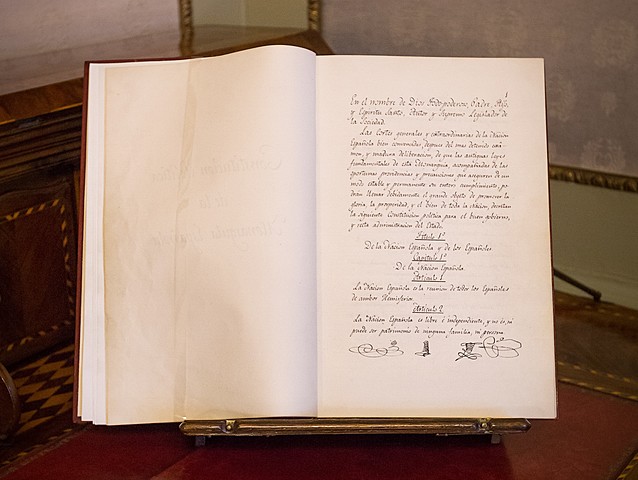 1
En el nombre de Dios Todo-poderoso, Padre, Hijo,
y Espiritu Santo, Autor y Supremo Legislador de
la Sociedad.
Las Cortes generales y extraordinarias de la Nacion
Española bien convencidas, despues del mas detenido exá-
men, y madura deliberacion, de que las antiguas leyes
fundamentales de esta Monarquia, acompañadas de las
oportunas providencias y precauciones que aseguren de un
modo estable y permanente su entero cumplimiento, po-
drán llenar debidamente el grande objeto de promover la
gloria, la prosperidad, y el bien de toda la Nacion, decretan
la siguiente Constitucion politica para el buen gobierno,
y recta administracion del Estado.
Titulo 1º
De la Nacion Española y de los Españoles.
Capitulo 1º
De la Nacion Española.
Articulo 1
La Nacion Española es la reunion de todos los Españoles
de ambos Hemisferios.
Articulo 2
La Nacion Española es libre é independiente, y no es, ni
puede ser patrimonio de ninguna familia, ni persona